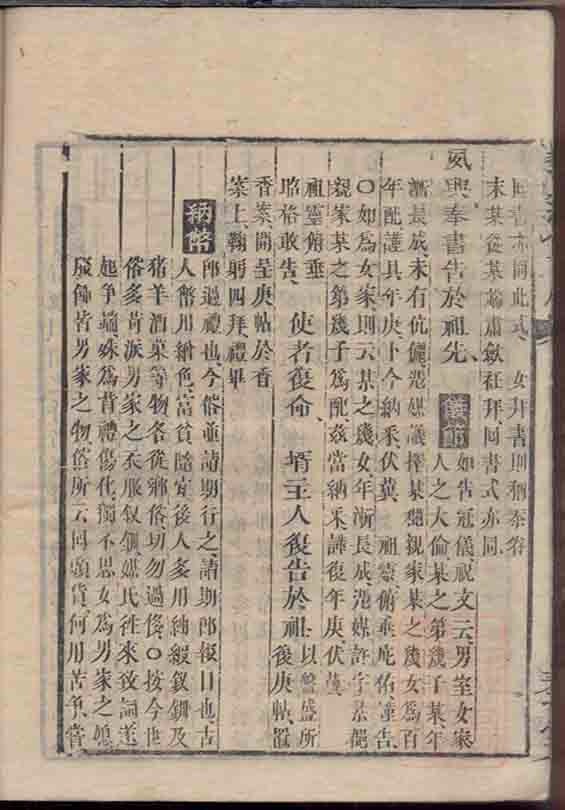 回書亦同此式、　女拜書則稱泰谷
末某從某翁肅斂衽拜、回書式亦同、
夙興奉書告於祖先、儀節 如告冠儀祝文云、男室女家
人之大倫、某之第幾子某、年
漸長成、未有伉儷、凂媒議擇某處親家某之幾女爲百
年配、謹具年庚、卜今納采、伏冀　祖靈俯垂庇佑、謹告、
〇如爲女家、則云某之幾女年漸長成、凂媒許字某處
親家某之第幾子爲配、茲當納采、謹復年庚、伏冀
祖靈俯垂
昭格敢告、　使者復命、　壻主人復告於祖、以盤盛所
後庚帖、置
香案、開呈庚帖於香
案上、鞠躬四拜、禮畢
納幣 卽過禮也、今俗並請期行之、請期卽報日也、古
人幣用繒色、富貧隨宜、後人多用紬緞釵釧及
猪羊酒菓等物、各從鄉俗、切勿過侈、〇按今世
俗多苛派男家之衣服釵釧、媒氏往來致詞、遂
起爭端、殊爲背禮傷化、獨不思女爲男家之媳、
粧飾皆男家之物、俗所云回頭貨、何用苦爭、嘗